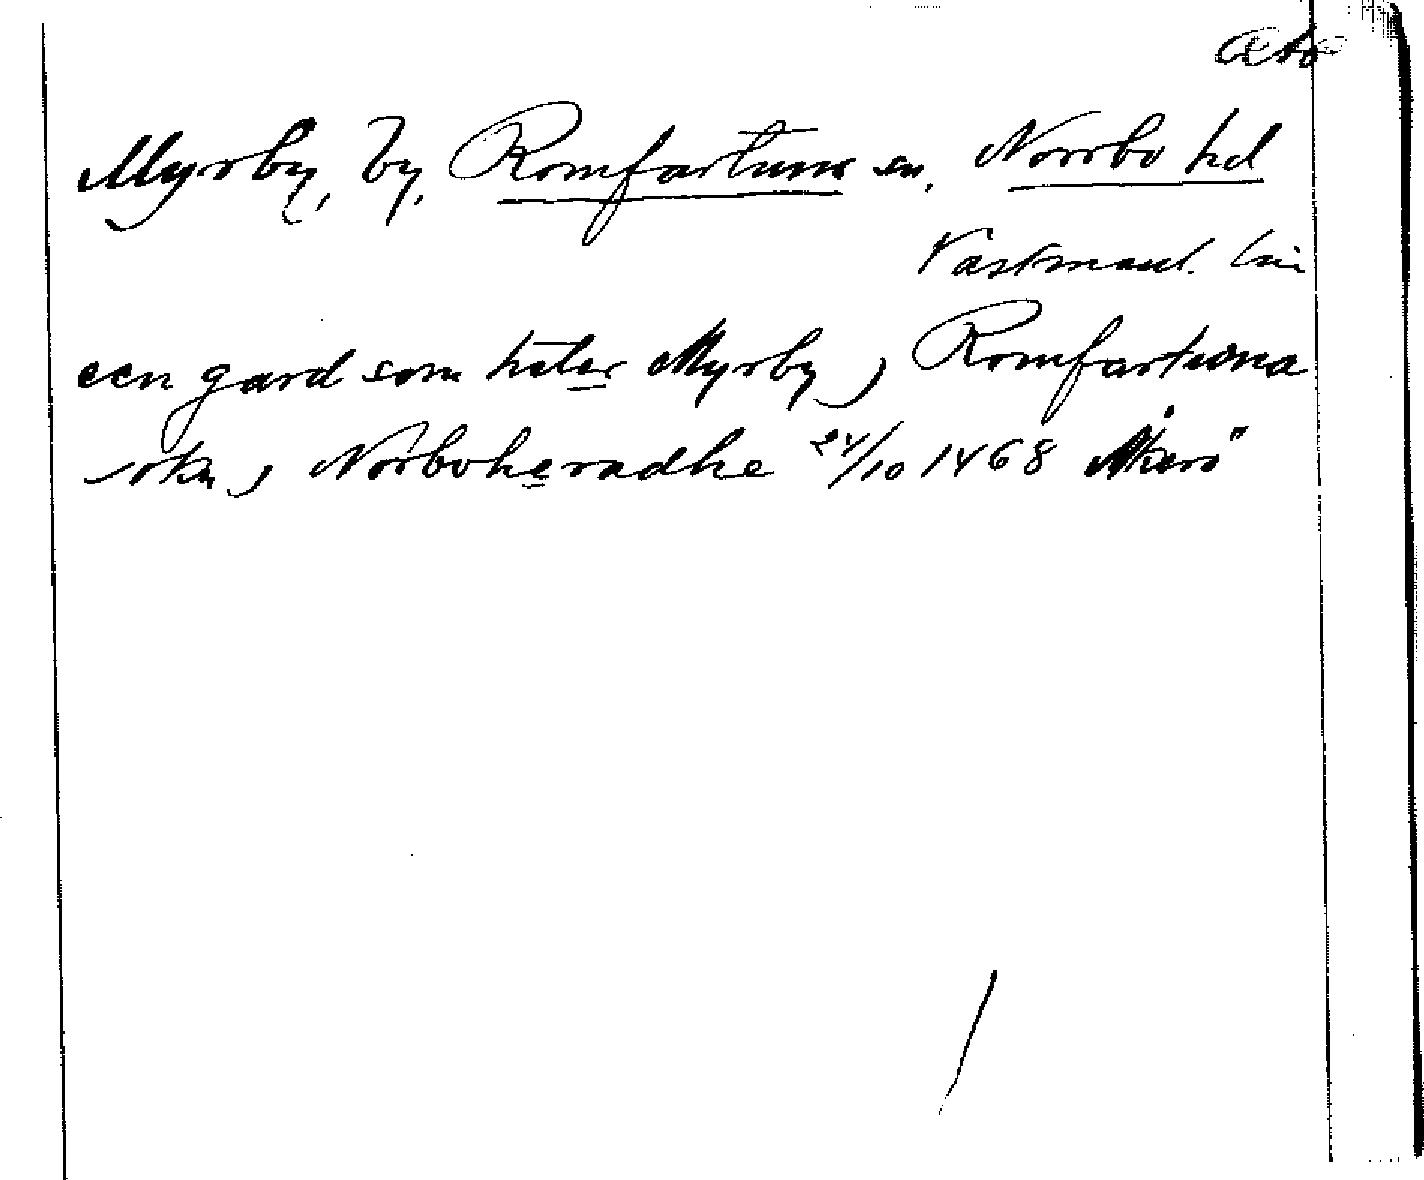 Myrby, by, Romfartuna sn, Norrbo hd
Västmanl. län
een gard som heter Myrby j Romfartuna
sokn j Norboheradhe 24/10 1468